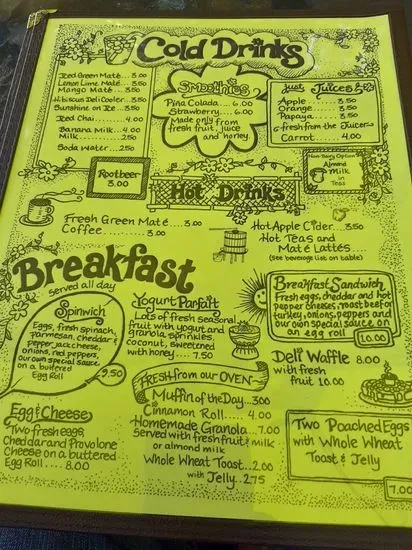 Cold Drinks
Iced Green Maté ... 3.00
Lemon Lime Maté ... 3.50
Mango Maté ... 3.50
Hibiscus Deli Cooler ... 3.50
Sunshine on Ice ... 3.50
Iced Chai ... 4.00
Banana Milk ... 4.00
Milk ... 2.50
Soda Water ... 2.50
Smoothies
Piña Colada ... 6.00
Strawberry ... 6.00
Made only from
fresh fruit, juice
and honey.
Just Juices
Apple ... 3.50
Orange ... 3.50
Papaya ... 3.50
fresh from the Juicer
Carrot ... 4.00
Rootbeer
3.00
Non-Dairy Option
Almond
Milk
in
Teas
Hot Drinks
Fresh Green Maté ... 3.00
Coffee ... 3.00
Hot Apple Cider ... 3.50
Hot Teas and
Maté Lattés
(See beverage list on table)
Breakfast
served all day
Spinwich
Eggs, fresh spinach,
Parmesan, cheddar &
pepper jack cheese,
onions, red peppers,
our own special sauce
on a buttered
Egg Roll
9.50
Yogurt Parfait
Lots of fresh seasonal
fruit with yogurt and
granola, sprinkles,
coconut, sweetened
with honey .... 7.50
Breakfast Sandwich
Fresh eggs, cheddar and hot
pepper cheeses, roast beef or
turkey, onions, peppers and
our own special sauce on
an egg roll
10.00
Deli Waffle 8.00
with fresh
fruit 10.00
Fresh from our Oven
Muffin of the Day ... 3.00
Cinnamon Roll ..... 4.00
Homemade Granola ... 7.00
served with fresh fruit & milk
or almond milk
Whole Wheat Toast ... 2.00
with Jelly .. 2.75
Egg & Cheese
Two fresh eggs,
Cheddar and Provolone
Cheese on a buttered
Egg Roll .... 8.00
Two Poached Eggs
with Whole Wheat
Toast & Jelly
7.00